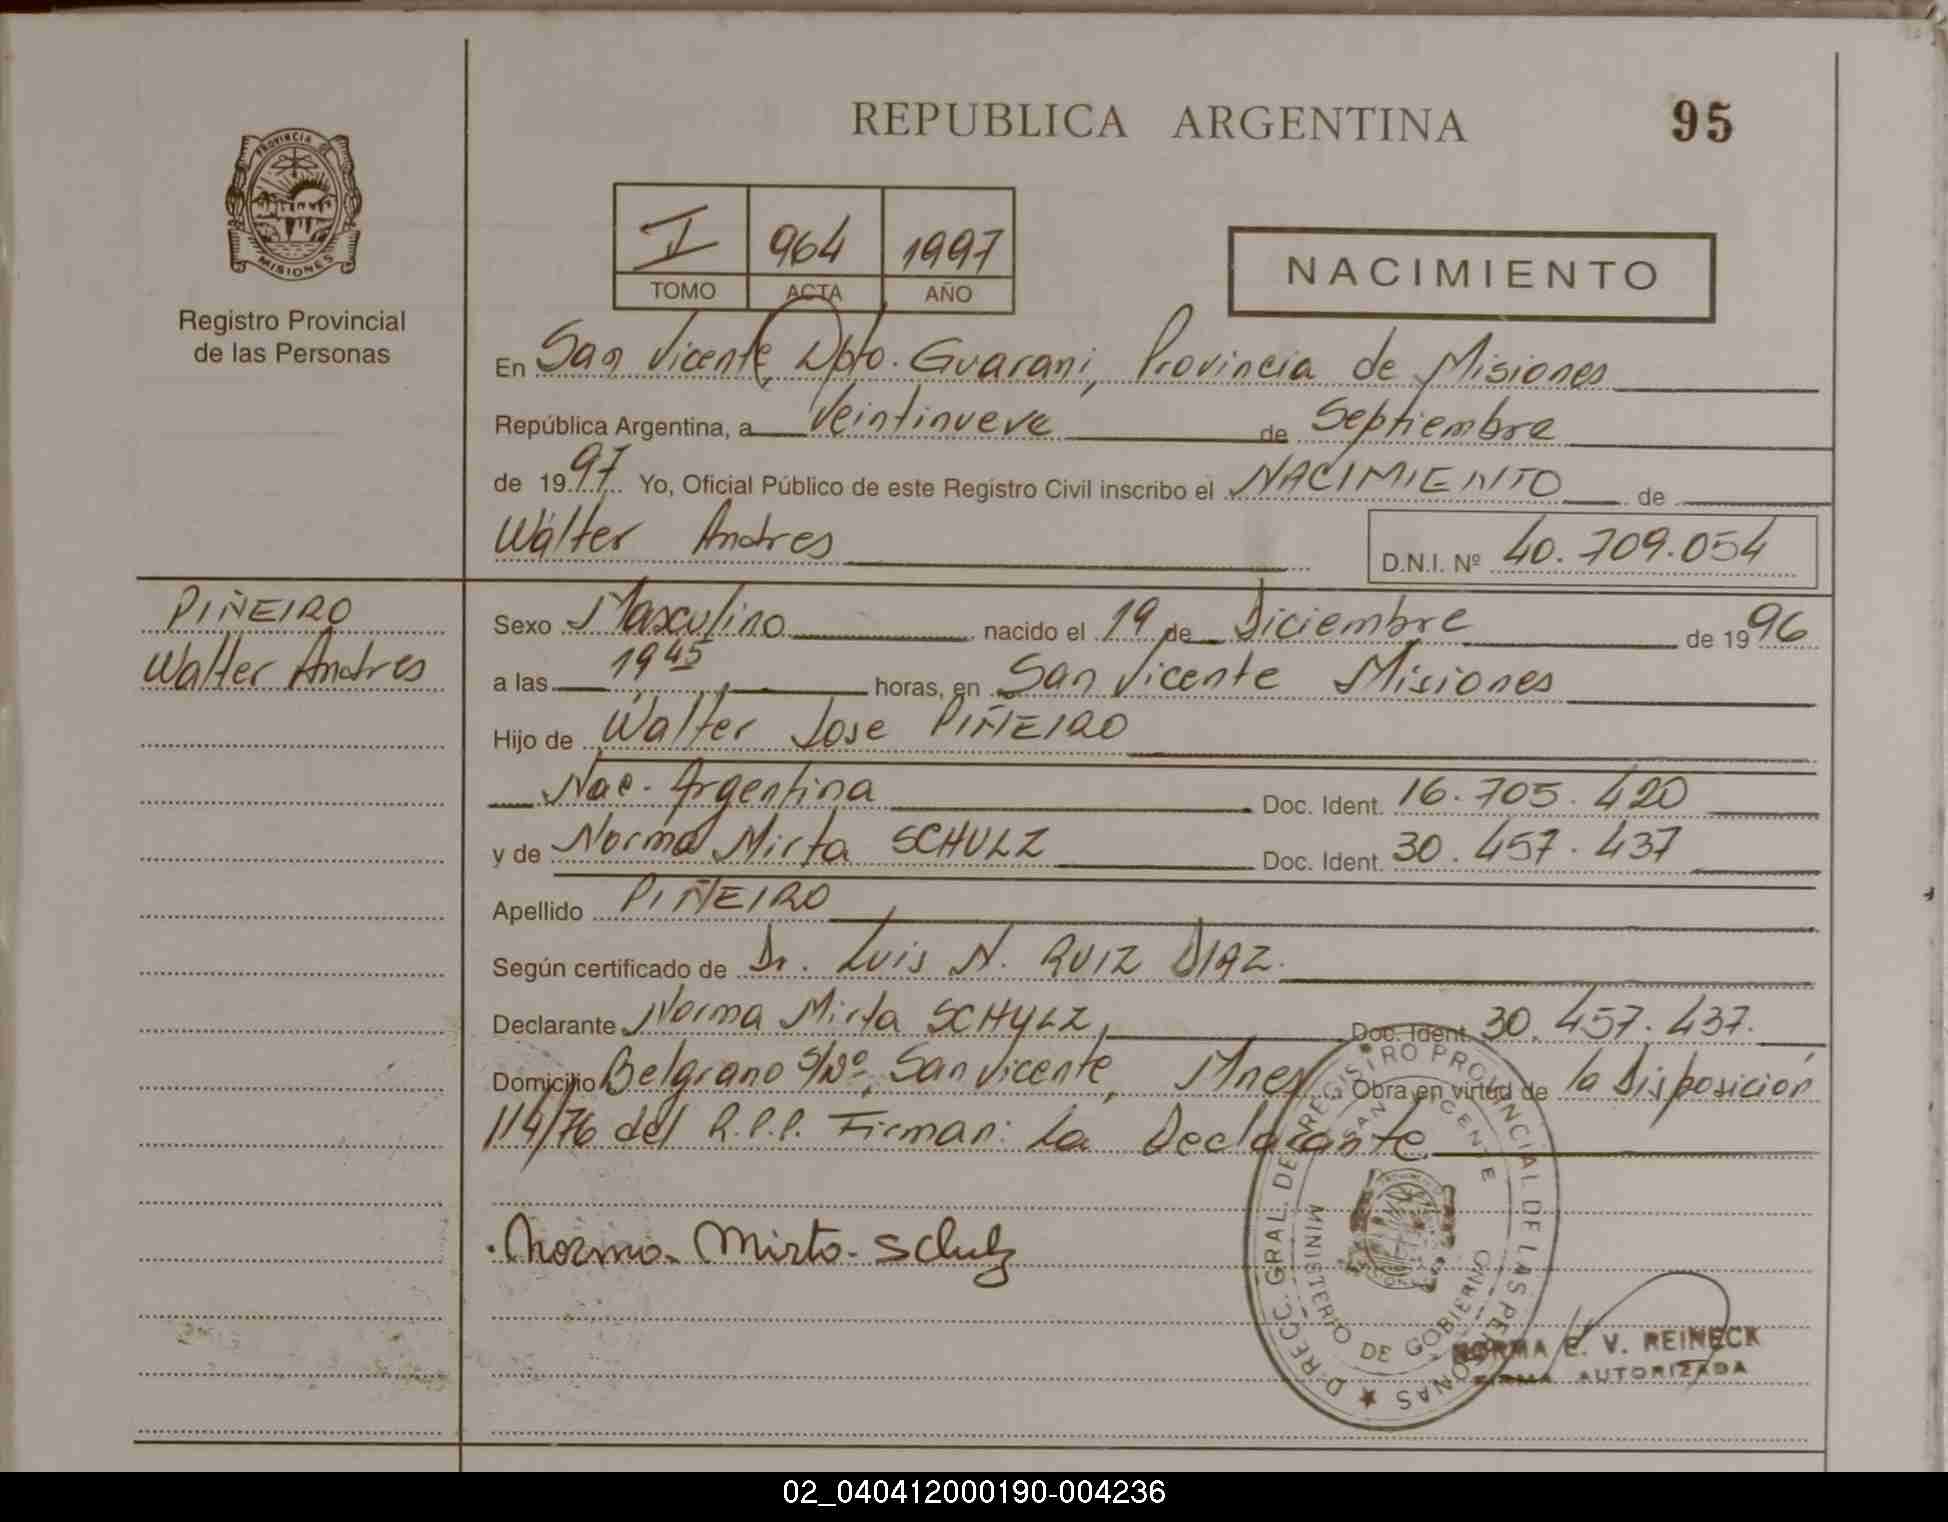 REPUBLICA ARGENTINA 95
PROVINCIA DE
MISIONES
Registro Provincial
de las Personas
I 964 1997
TOMO ACTA AÑO
NACIMIENTO
En San Vicente, Dpto. Guarani, Provincia de Misiones
República Argentina, a Veintinueve de Septiembre
de 1997 Yo, Oficial Público de este Registro Civil inscribo el NACIMIENTO de
Wálter Andres D.N.I. Nº 40.709.054
PIÑEIRO
Walter Andres
Sexo Masculino nacido el 19 de Diciembre de 1996
a las 19 45 horas, en San Vicente Misiones
Hijo de Walter Jose PIÑEIRO
Nac. Argentina Doc. Ident. 16.705.420
y de Norma Mirta SCHULZ Doc. Ident. 30.457.437
Apellido PIÑEIRO
Según certificado de Dr. Luis N. RUIZ DIAZ.
Declarante Norma Mirta SCHULZ, Doc. Ident. 30.457.437.
Domicilio Belgrano S/Nº, San Vicente, Mnes. Obra en virtud de la Disposición
114/76 del R.P.P. Firman: La Declarante
Norma Mirta Schulz
DIRECC. GRAL. DE REGISTRO PROVINCIAL DE LAS PERSONAS
SAN VICENTE
MINISTERIO DE GOBIERNO
NORMA E. V. REINECK
FIRMA AUTORIZADA
02_040412000190-004236